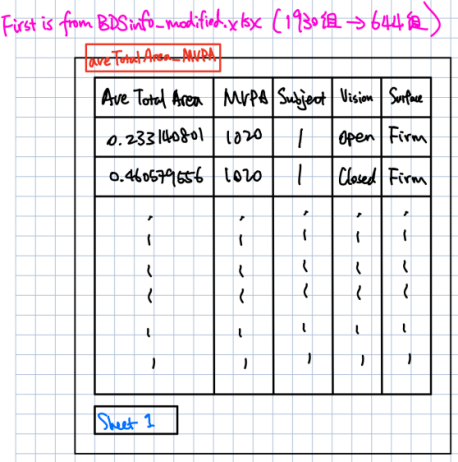 First is from BDSinfo_modified.xlsx (1930组 → 644组)
ave Total Area_MVPA
Ave Total Area MVPA Subject Vision Surface
0.233140801 1020 1 open Firm
0.460579656 1020 1 Closed Firm
Sheet 1